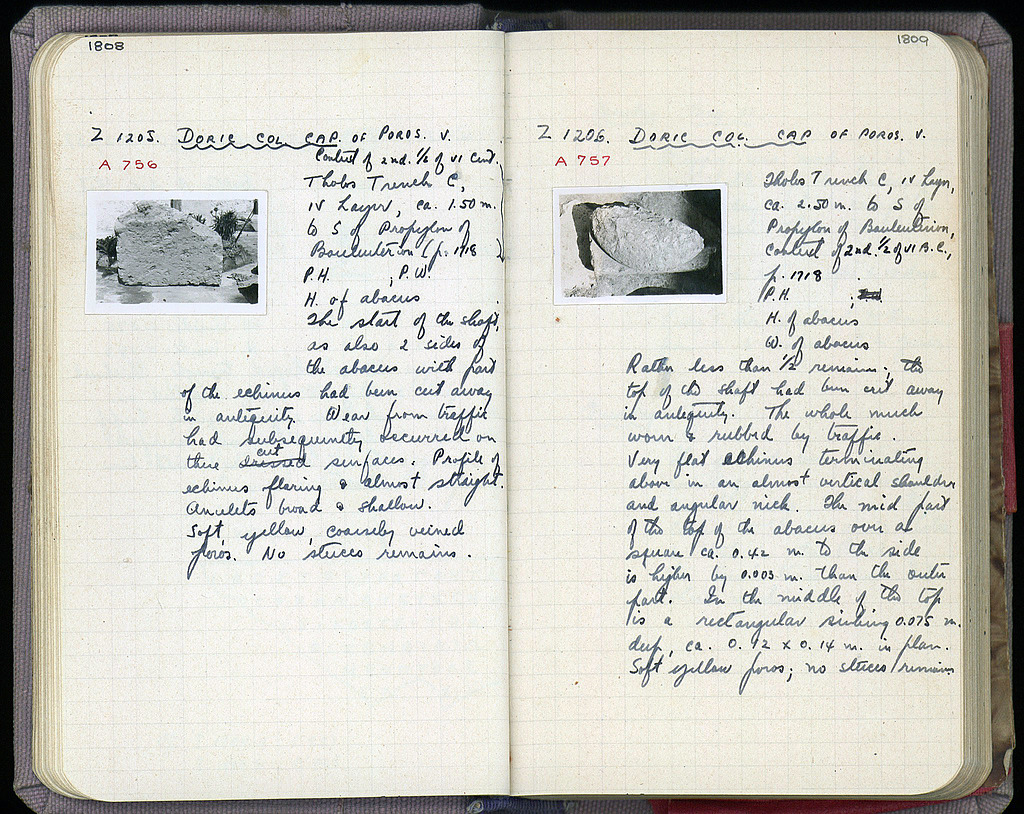 1808
Z 1205. DORIC COL. CAP. OF POROS. V.
A 756
Context of 2nd. ½ of VI Cent.
Tholos Trench C,
IV Layer, ca. 1.50 m.
to S of Propylon of
Bouleuterion (p. 1718 )
P.H. ; P.W.
H. of abacus
The start of the shaft,
as also 2 sides of
the abacus with part
of the echinus had been cut away
in antiquity. Wear from traffic
had subsequently occurred on
these dressed cut surfaces. Profile of
echinus flaring & almost straight.
Annulets broad & shallow.
Soft, yellow, coarsely veined
poros. No stucco remains.
1809
Z 1206. DORIC COL. CAP OF POROS. V.
A 757
Tholos Trench C, IV Layer,
ca. 2.50 m. to S of
Propylon of Bouleuterion,
Context of 2nd. ½ of VI B.C.,
p. 1718
P.H. ;
H. of abacus
W. of abacus
Rather less than ½ remains: the
top of the shaft had been cut away
in antiquity. The whole much
worn & rubbed by traffic.
Very flat echinus terminating
above in an almost vertical shoulder
and angular nick. The mid part
of the top of the abacus over a
square ca. 0.42 m. to the side
is higher by 0.003 m. than the outer
part. In the middle of the top
is a rectangular sinking 0.075 m.
deep, ca. 0.12 x 0.14 m. in plan.
Soft yellow poros; no stucco remains